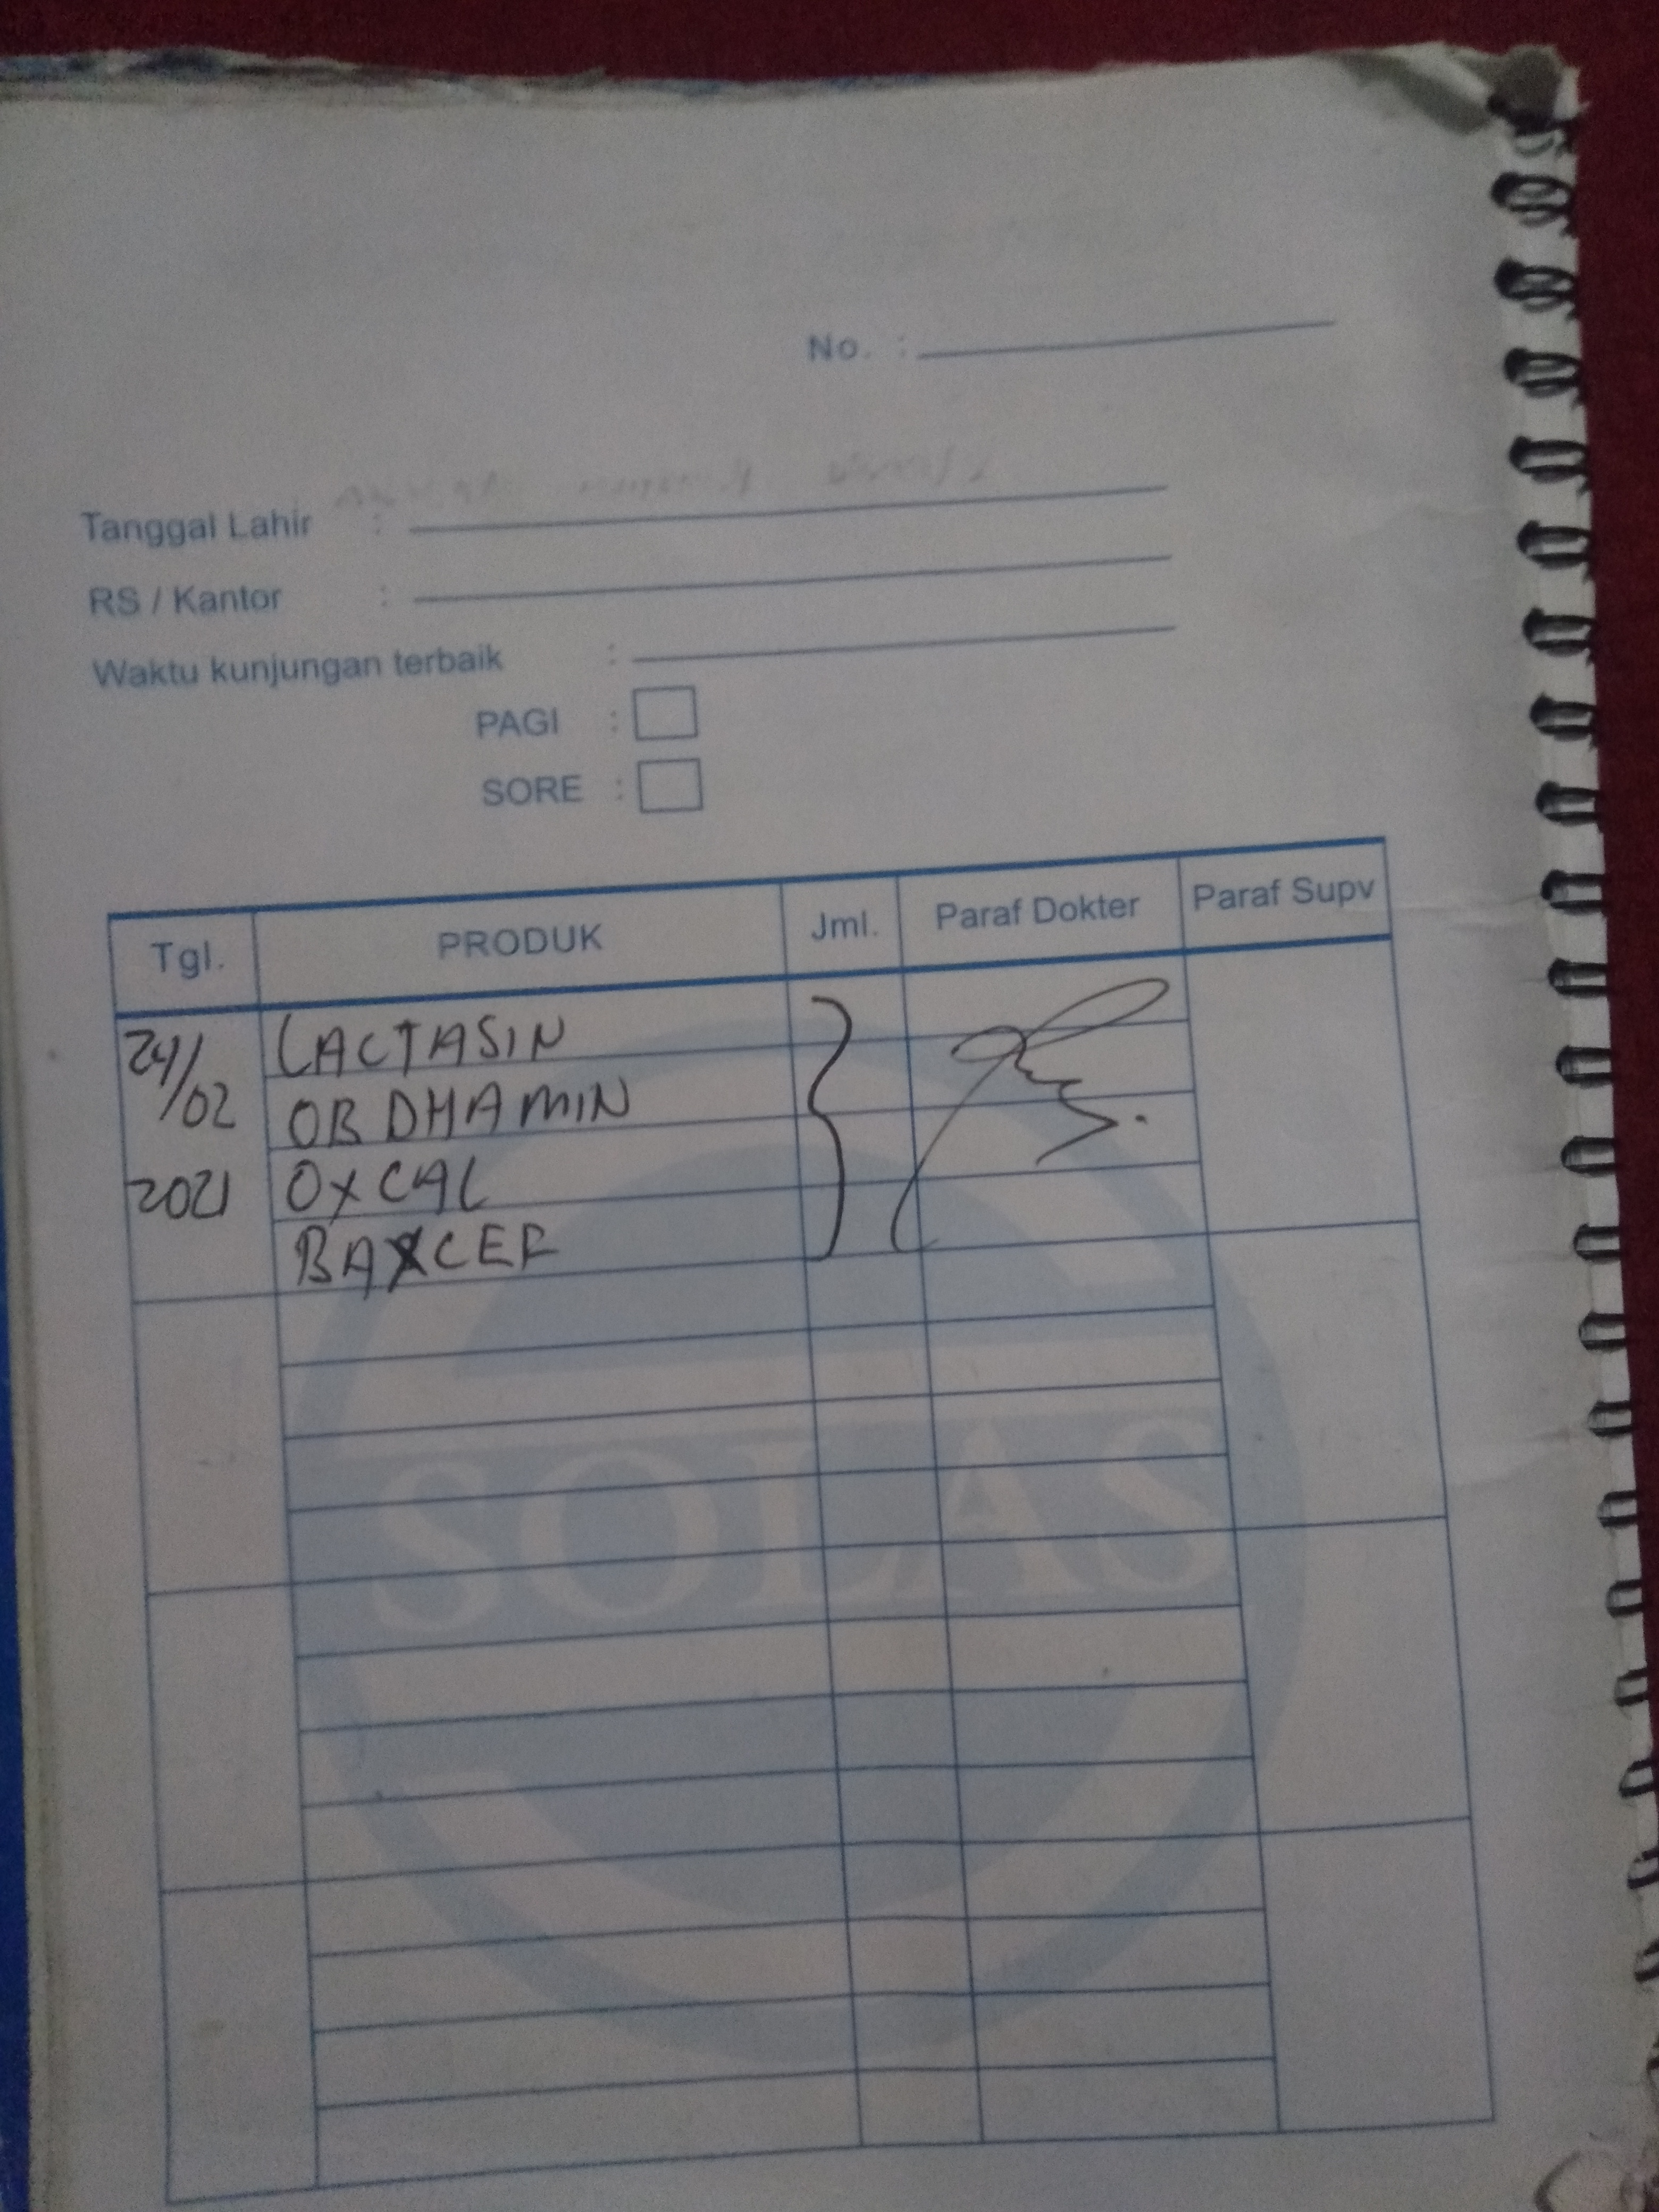 No. :
Tanggal Lahir :
RS / Kantor :
Waktu kunjungan terbaik :
PAGI :
SORE :
Tgl. PRODUK Jml. Paraf Dokter Paraf Supv
24/02 LACTASIN
OB DHAMIN
2021 OXCAL
BAXCEF
SOLAS